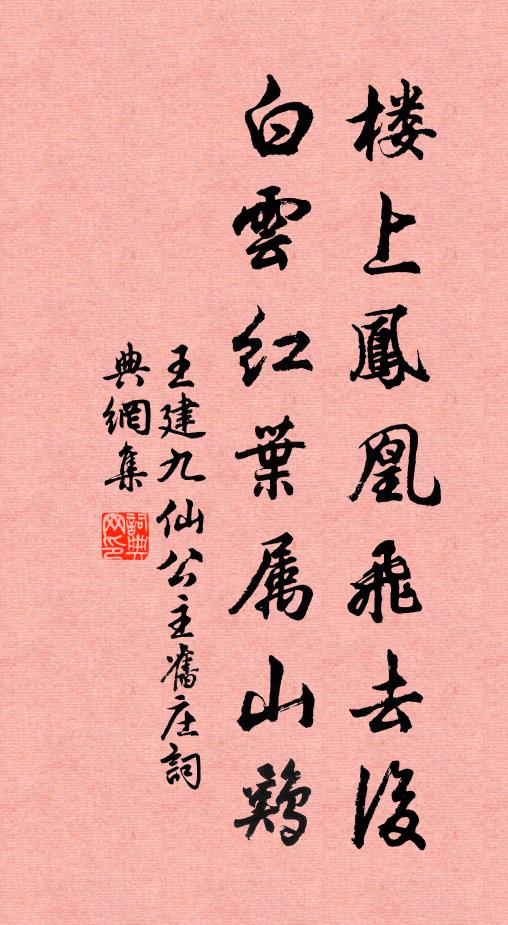 楼上鳳凰飛去後
白雲紅葉属山鷄
王建九仙公主舊庄詞
典網集
詞典網印